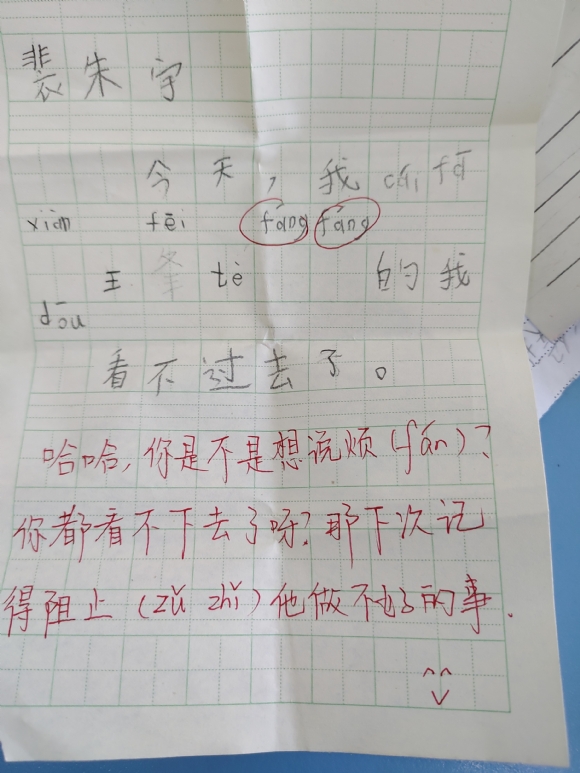 裴朱宇
今天，我 chī fā
xiàn fēi fáng fáng
王 峯 tè 的我
dōu
看不过去了。
哈哈,你是不是想说烦(fán)?
你都看不下去了呀?那下次记
得阻止(zǔ zhǐ)他做不好的事.